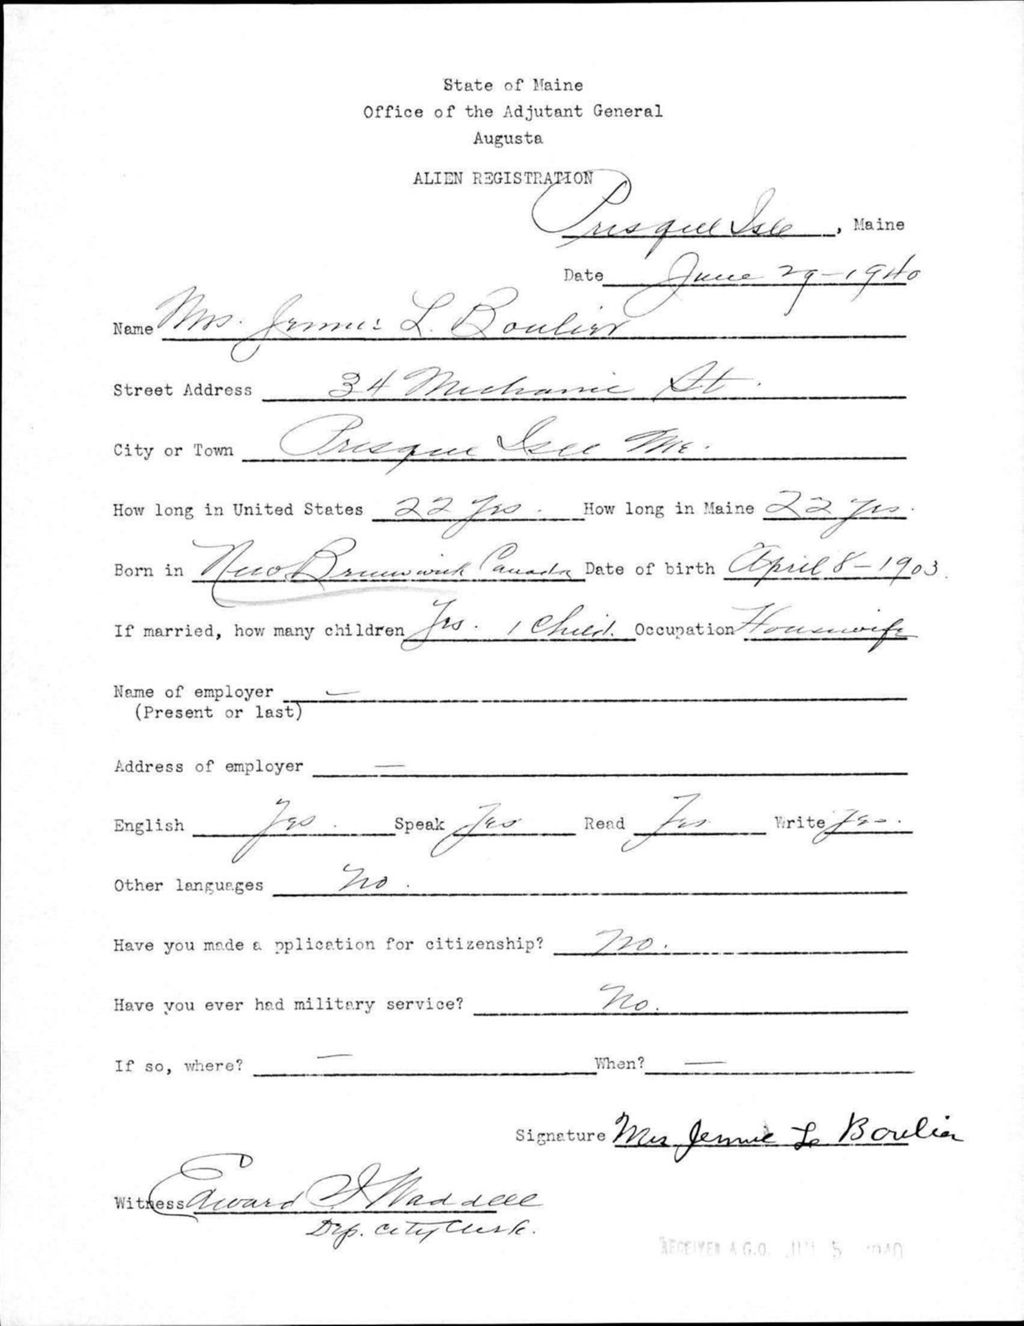 State of Maine
Office of the Adjutant General
Augusta
ALIEN REGISTRATION
Presque Isle, Maine
Date June 29-1940
Name Mrs. Jennie L. Boulier
Street Address 34 Mechanic St.
City or Town Presque Isle Me.
How long in United States 22 Yrs. How long in Maine 22 Yrs.
Born in New Brunswick Canada Date of birth April 8-1903
If married, how many children Yes. 1 Child. Occupation Housewife
Name of employer —
(Present or last)
Address of employer —
English Yes. Speak Yes Read Yes Write Yes.
Other languages No.
Have you made a pplication for citizenship? No.
Have you ever had military service? No.
If so, where? — When? —
Signature Mrs Jennie L Boulier
Witness Edward J Waddell
Dep. City Clerk.
RECEIVED A.G.O. 5 1940